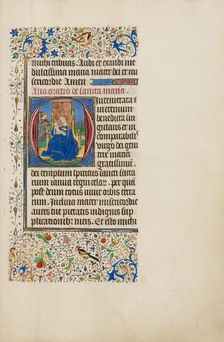 michi roboras. Audi et exaudi me
dulcissima maria mater dei et mi
sericordie Amen
Alia oratio de sancta maria
Intemerata et
ineternum
benedicta sin
gularis et in
comparabilis
virgo dei geni
trix maria
gratissimum
dei templum spiritus sancti sacra
rium ianua regni celorum. per quam
post deum totus vivit orbis terra
rum Inclina mater misericordie
aures tue pietatis indignis sup
plicationibus meis. Et esto michi